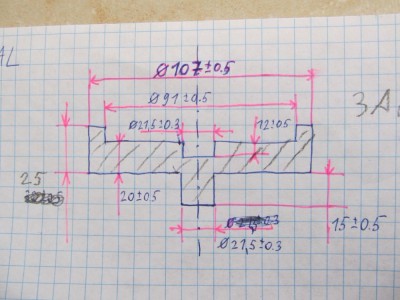 AL
Ø107±0.5
Ø91±0.5
Ø21,5±0.3
12±05
25
20±05
Ø21,5±0.3
15±0.5